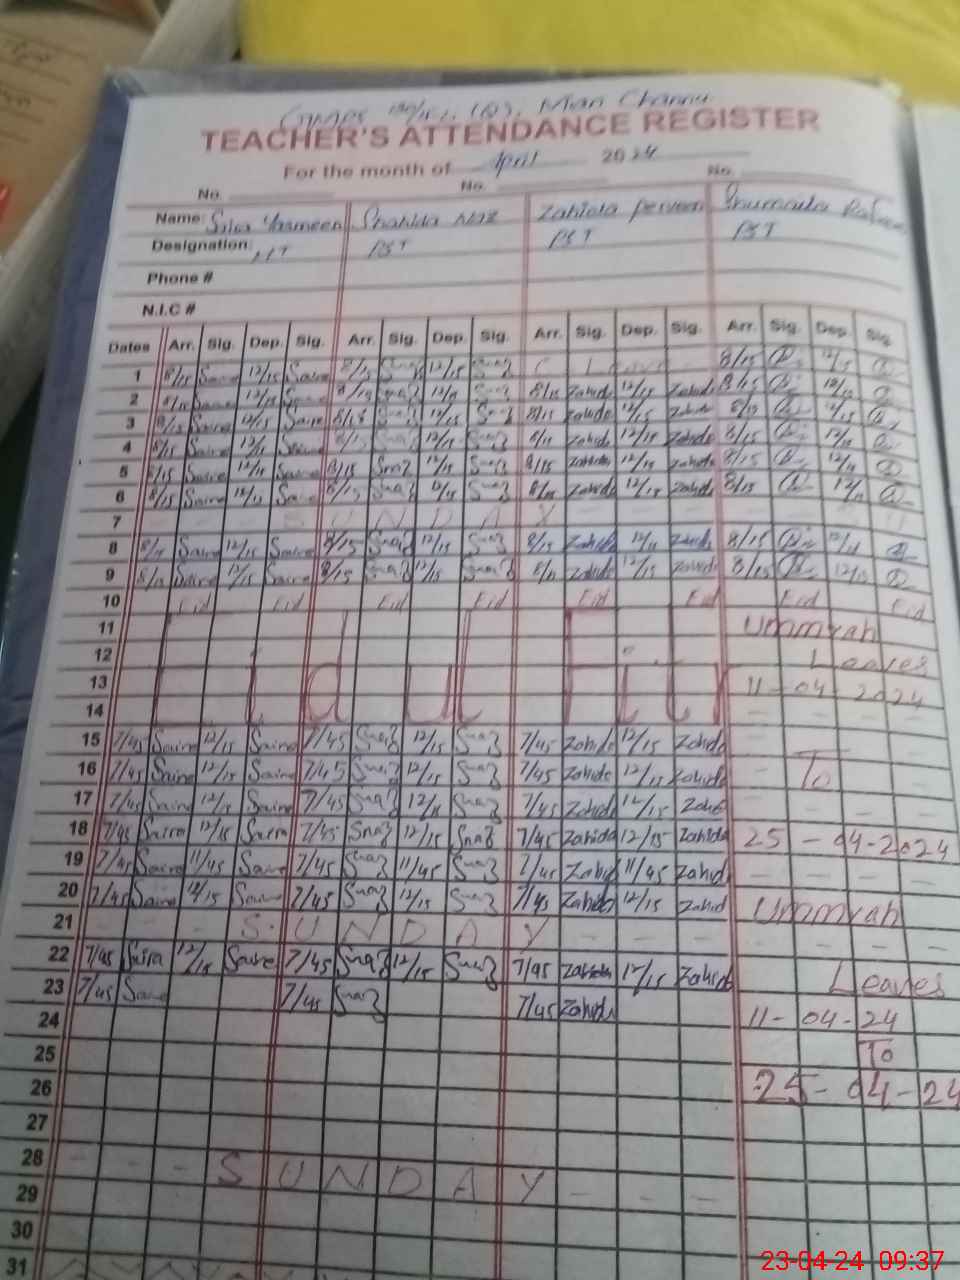 Mian Channu
TEACHER'S ATTENDANCE REGISTER
For the month of April 2024
No. No. No.
Name: Saira Yasmeen Shahida Naz Zahida Perveen Shumaila
Designation: PST PST PST
Phone #
N.I.C #
Dates Arr. Sig. Dep. Sig. Arr. Sig. Dep. Sig. Arr. Sig. Dep. Sig. Arr. Sig. Dep. Sig.
1 8/15 12/15 Saira 8/15 12/15 Snaz C Leave 8/15 12/15
2 8/15 12/15 8/15 12/15 8/15 Zahida 12/15 Zahida 8/15 12/15
3 8/15 12/15 Saira 8/15 12/15 Snaz 8/15 Zahida 12/15 Zahida 8/15 12/15
4 8/15 Saira 12/15 8/15 12/15 Snaz 8/15 Zahida 12/15 Zahida 8/15 12/15
5 8/15 Saira 12/15 Saira 8/15 Snaz 12/15 Snaz 8/15 Zahida 12/15 Zahida 8/15 12/15
6 8/15 Saira 12/15 Saira 8/15 Snaz 12/15 Snaz 8/15 Zahida 12/15 Zahida 8/15 12/15
7 S U N D A Y
8 8/15 Saira 12/15 Saira 8/15 Snaz 12/15 Snaz 8/15 Zahida 12/15 Zahida 8/15 12/15
9 8/15 Saira 12/15 Saira 8/15 Snaz 12/15 Snaz 8/15 Zahida 12/15 Zahida 8/15 12/15
10 Eid Eid Eid Eid Eid Eid Eid Eid
11 Ummrah
12 Eid ul Fitr Leaves
13 11-04-2024
14
15 7/45 Saira 12/15 Saira 7/45 Snaz 12/15 Snaz 7/45 Zahida 12/15 Zahida
16 7/45 Saira 12/15 Saira 7/45 Snaz 12/15 Snaz 7/45 Zahida 12/15 Zahida To
17 7/45 Saira 12/15 Saira 7/45 Snaz 12/15 Snaz 7/45 Zahida 12/15 Zahida
18 7/45 Saira 12/15 Saira 7/45 Snaz 12/15 Snaz 7/45 Zahida 12/15 Zahida 25-04-2024
19 7/45 Saira 11/45 Saira 7/45 Snaz 11/45 Snaz 7/45 Zahida 11/45 Zahida
20 7/45 Saira 12/15 Saira 7/45 Snaz 12/15 Snaz 7/45 Zahida 12/15 Zahida Ummrah
21 S U N D A Y
22 7/45 Saira 12/15 Saira 7/45 Snaz 12/15 Snaz 7/45 Zahida 12/15 Zahida Leaves
23 7/45 Saira 7/45 Snaz 7/45 Zahida
24 11-04-24
25 To
26 25-04-24
27
28 S U N D A Y
29
30
31
23-04-24 09:37